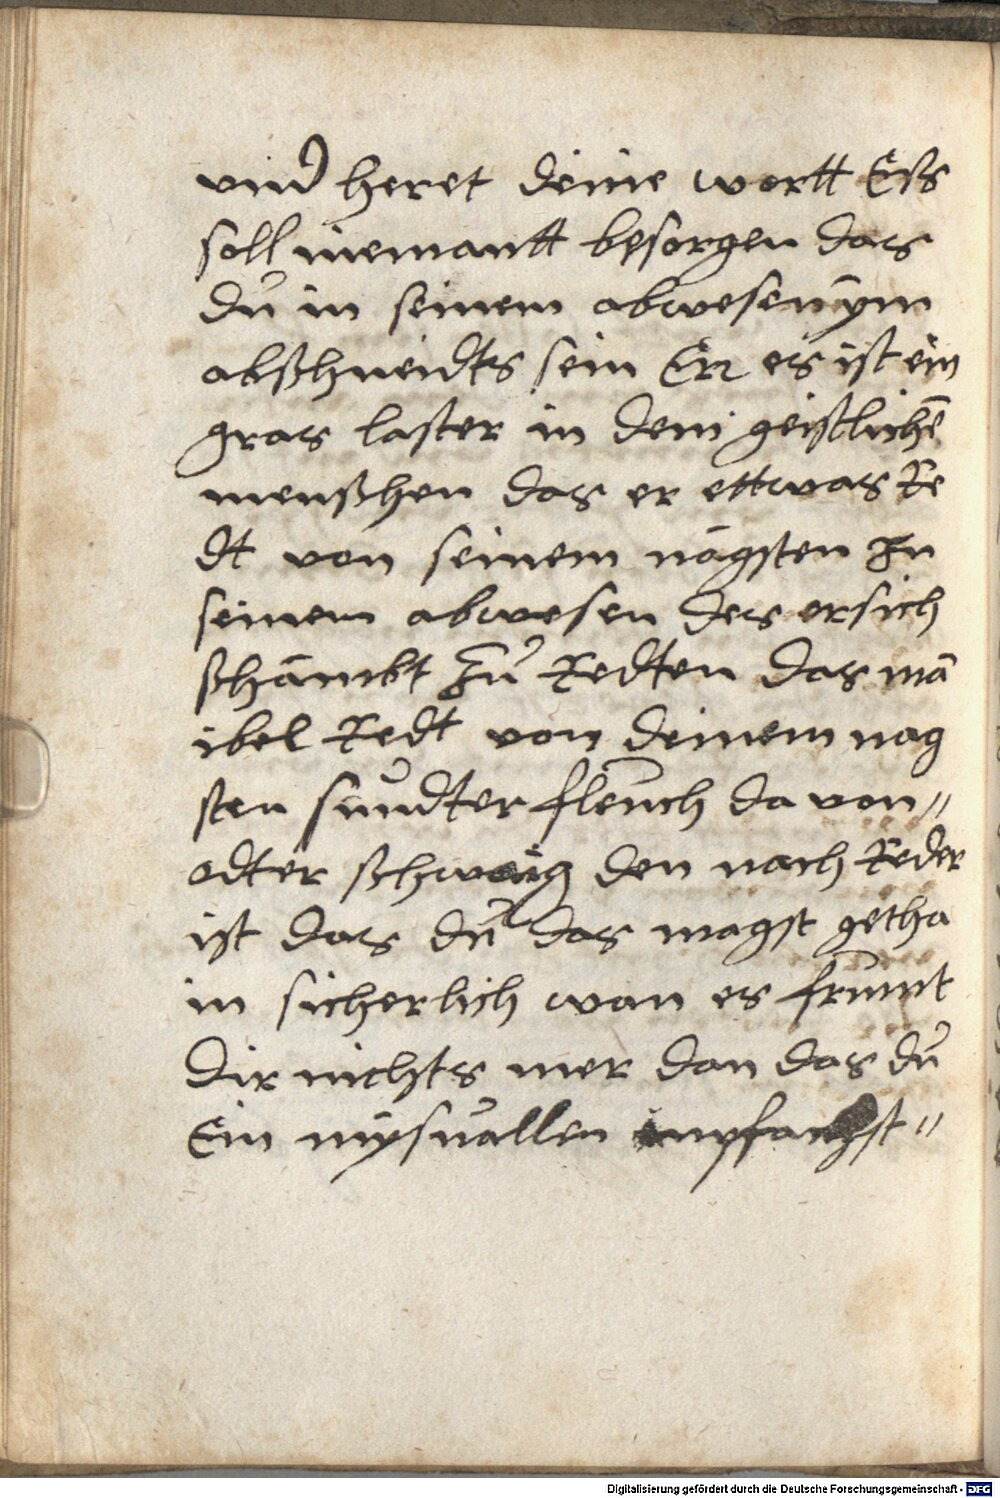 vnd heret deine wortt Ess
soll niemantt besorgen das
du in seinem abwesen ym
abschneidts sein Err es ist ein
gras laster in dem geistlichē
menschen das er ettwas Re
dt von seinem nägsten In
seinem abwesen des er sich
schämbt zu Redten das mā
ibel Redt von deinem nag
sten sundter fleuch da von //
odter schwaig den nach Reder
ist das du das magst getha
in sicherlich wan es frumt
dir nichts mer dan das du
Ein mysuallen empfachst //
Digitalisierung gefördert durch die Deutsche Forschungsgemeinschaft - DFG